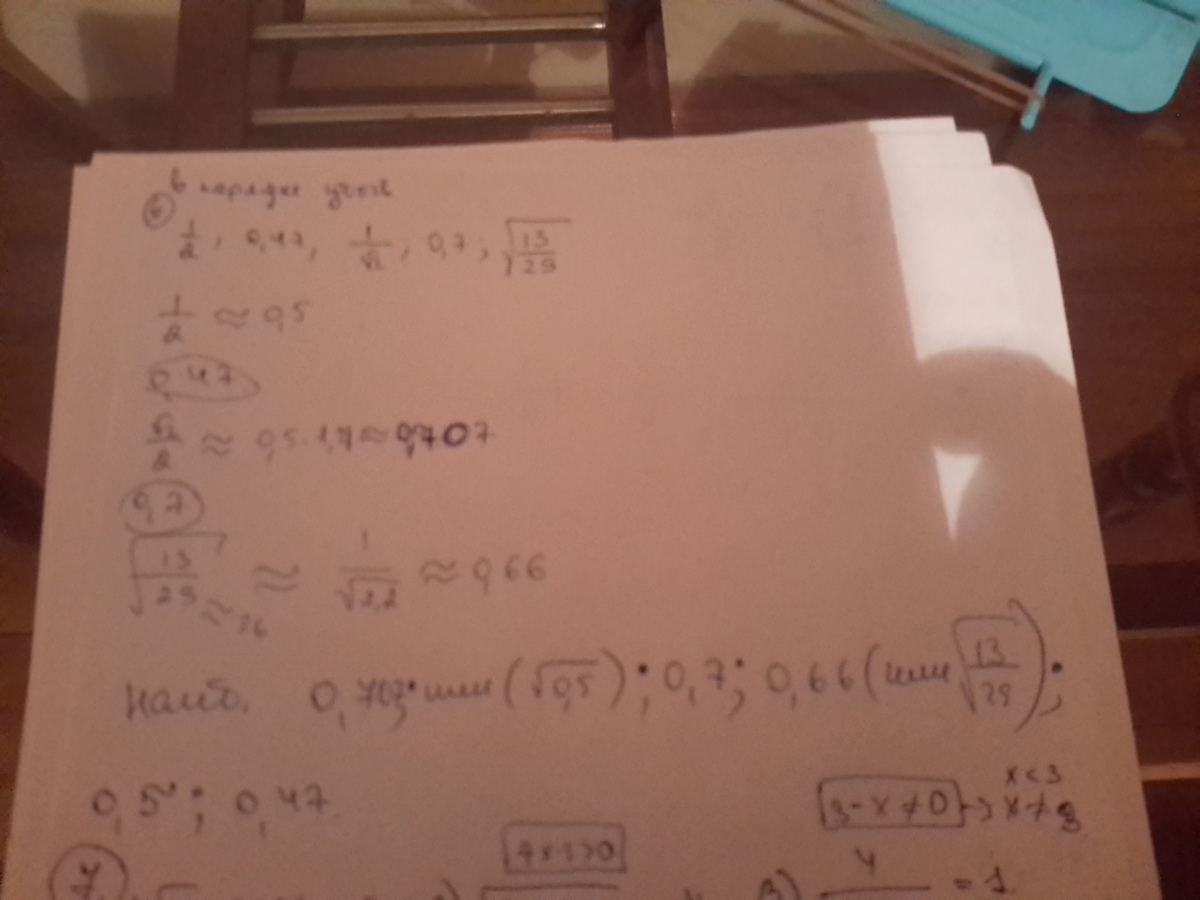 в порядке убыв
⑥ 1/2, 0,47, 1/√2, 0,7; √(13/29)
1/2 ≈ 0,5
0,47
√2/2 ≈ 0,5·1,4 ≈ 0,707
0,7
√(13/29) ≈ 1/√2,2 ≈ 0,66
≈26
наиб. 0,707; или (√0,5); 0,7; 0,66 (или √(13/29));
0,5; 0,47
x<3
3-x≠0 → x≠3
4
= 1